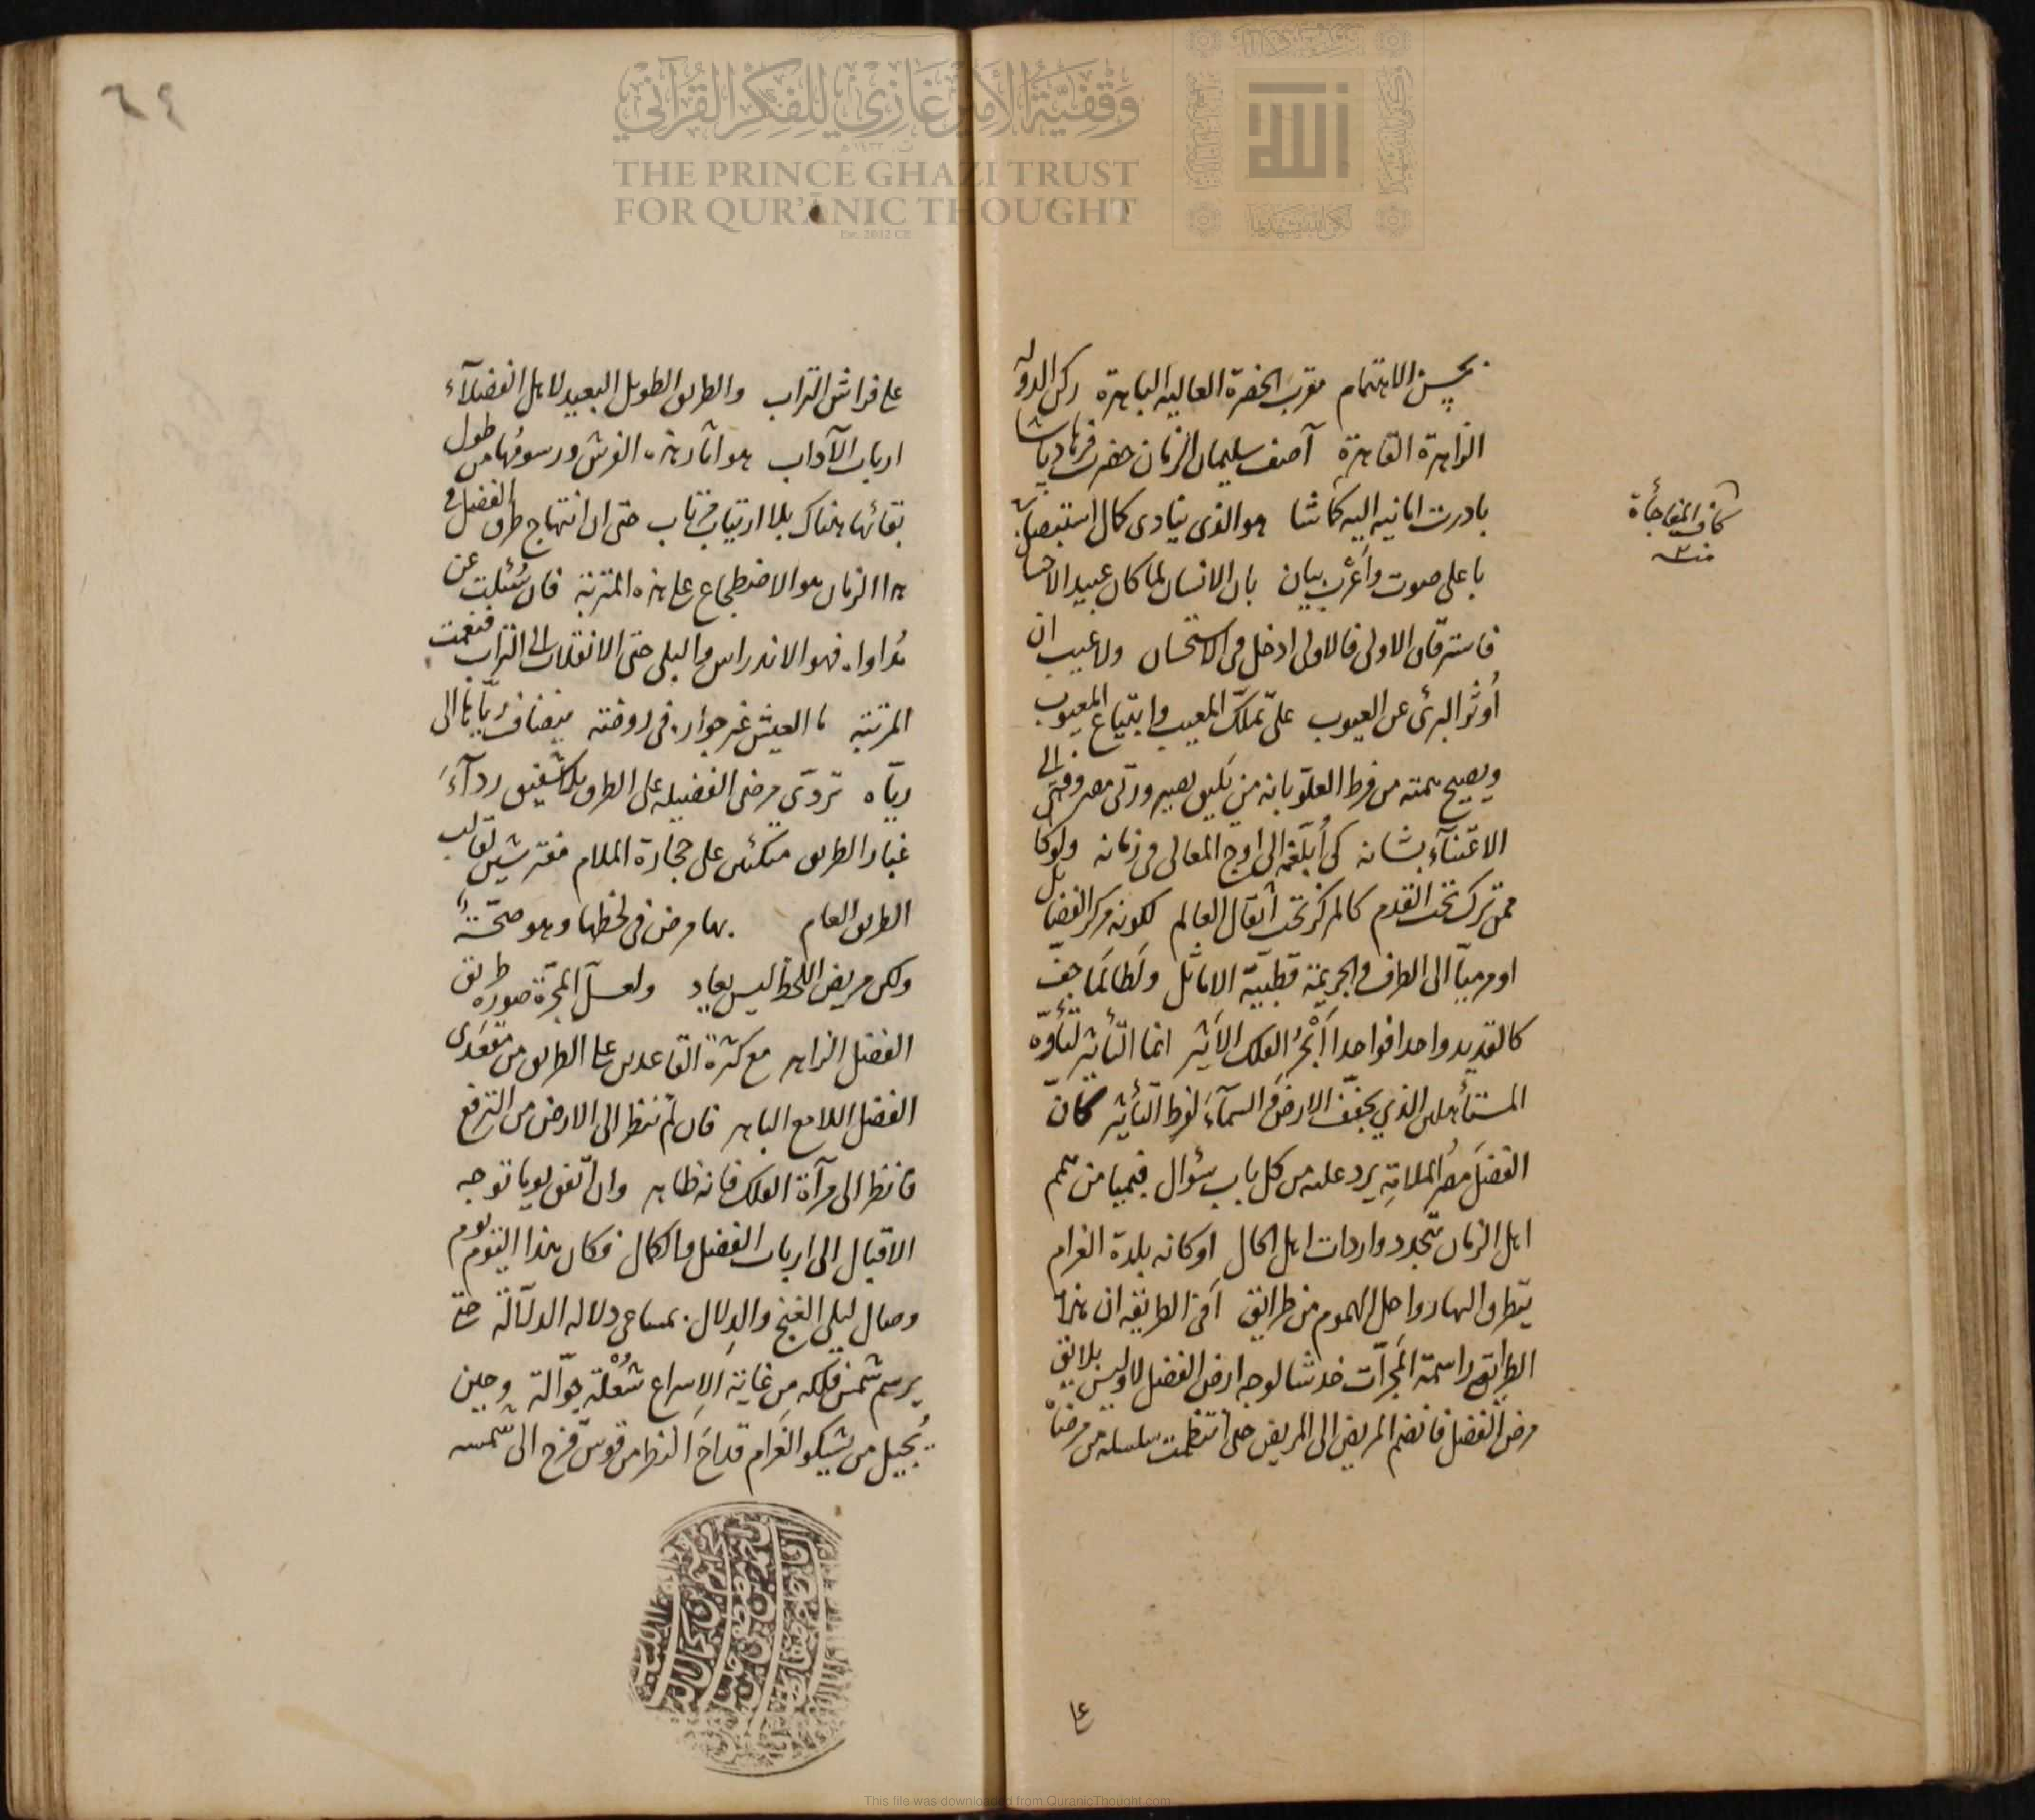 بحسن الاهتمام مقرب الحضرة العالية الباهرة ركن الدولة
الزاهرة القاهرة آصف سليمان الزمان حضرت فرهاد پاشا
بادرت امانيه اليه كما شا هو الذى ينادى كمال
باعلى صوت واعرب بيان بان الانسان لما كان عبيد الاحسا
فاسترقاق الاولى فالاولى ادخل فى الاستحسان ولا عيب ان
أوثر البرئ عن العيوب على تملك المعيب وابتياع المعيوب
ويصيح همته من فرط العلو بانه من يليق بصير ورتى مصروفة الى
الاعتناء بشانه كى أبلغه الى اوج المعالى فى زمانه ولو كا
ممن ترك تحت القدم كالمركز تحت أثقال العالم لكونه مركز الفضايل
او مرميا الى الطرف والجريمة قطبية الاماثل ولطالما جفف
كالقديد واحدا فواحدا أبحر الفلك الاثير انما التأثير لتأوه
المستأهلين الذي يجفف الارض والسمآء لفرط التأثير كان
الفضل مصر الملامة يرد عليه من كل باب سؤال فيميا من همم
اهل الزمان متجدد واردات اهل الحال او كانه بلدة الغرام
يتطرق اليها رواحل الهموم من طرائق أفى الطريقة ان هذه
الطرائق راسمة المجرات خدشا لوجه ارض الفضل لا وليس بلايق
مرض الفضل فانضم المريض الى المريض حتى انتظمت سلسلة من مرضاه
كان المفاجأة
منه
على
٦٤
على فراش التراب والطريق الطويل البعيد لاهل الفضلآء
ارباب الآداب هو آثار هذه الفرش ورسومها من طول
بقائها هناك بلا ارتياب مرتاب حتى ان انتهاج طرق الفضل فى
هذا الزمان هو الاضطجاع على هذه المتربة فان سئلت عن
مداواه فهو الاندراس والبلى حتى الانقلاب الى التراب فنعمت
المرتبة ما العيش غير جوار فى روضته يضاف رياها الى
رياه تردى مرضى الفضيلة على الطرق بلا شفيق ردآء
غبار الطريق متكئين على حجارة الملام مفترشين لقالب
الطريق العام بها مرض فى لحظها وهو صحة
ولكن مريض اللحظ ليس يعاد ولعل المجرة صورة طريق
الفضل الزاهر مع كثرة القاعدين على الطريق من مقعدى
الفضل اللامع الباهر فان لم تنظر الى الارض من الترفع
فانظر الى مرآة الفلك فانه ظاهر وان اتفق يوما توجه
الاقبال الى ارباب الفضل والكمال فكان هذا اليوم يوم
وصال ليلى الغنج والدلال بمساعى دلاله الدلالة حتى
يرسم شمس فلكه من غاية الاسراع شعلة جوالة وحين
يجيل من يشكو الغرام قداح النظر من قوس قزح الى شمسه
وقفية الأمير غازي للفكر القرآني
THE PRINCE GHAZI TRUST
FOR QUR'ĀNIC THOUGHT
Est. 2012 CE
الله
This file was downloaded from QuranicThought.com